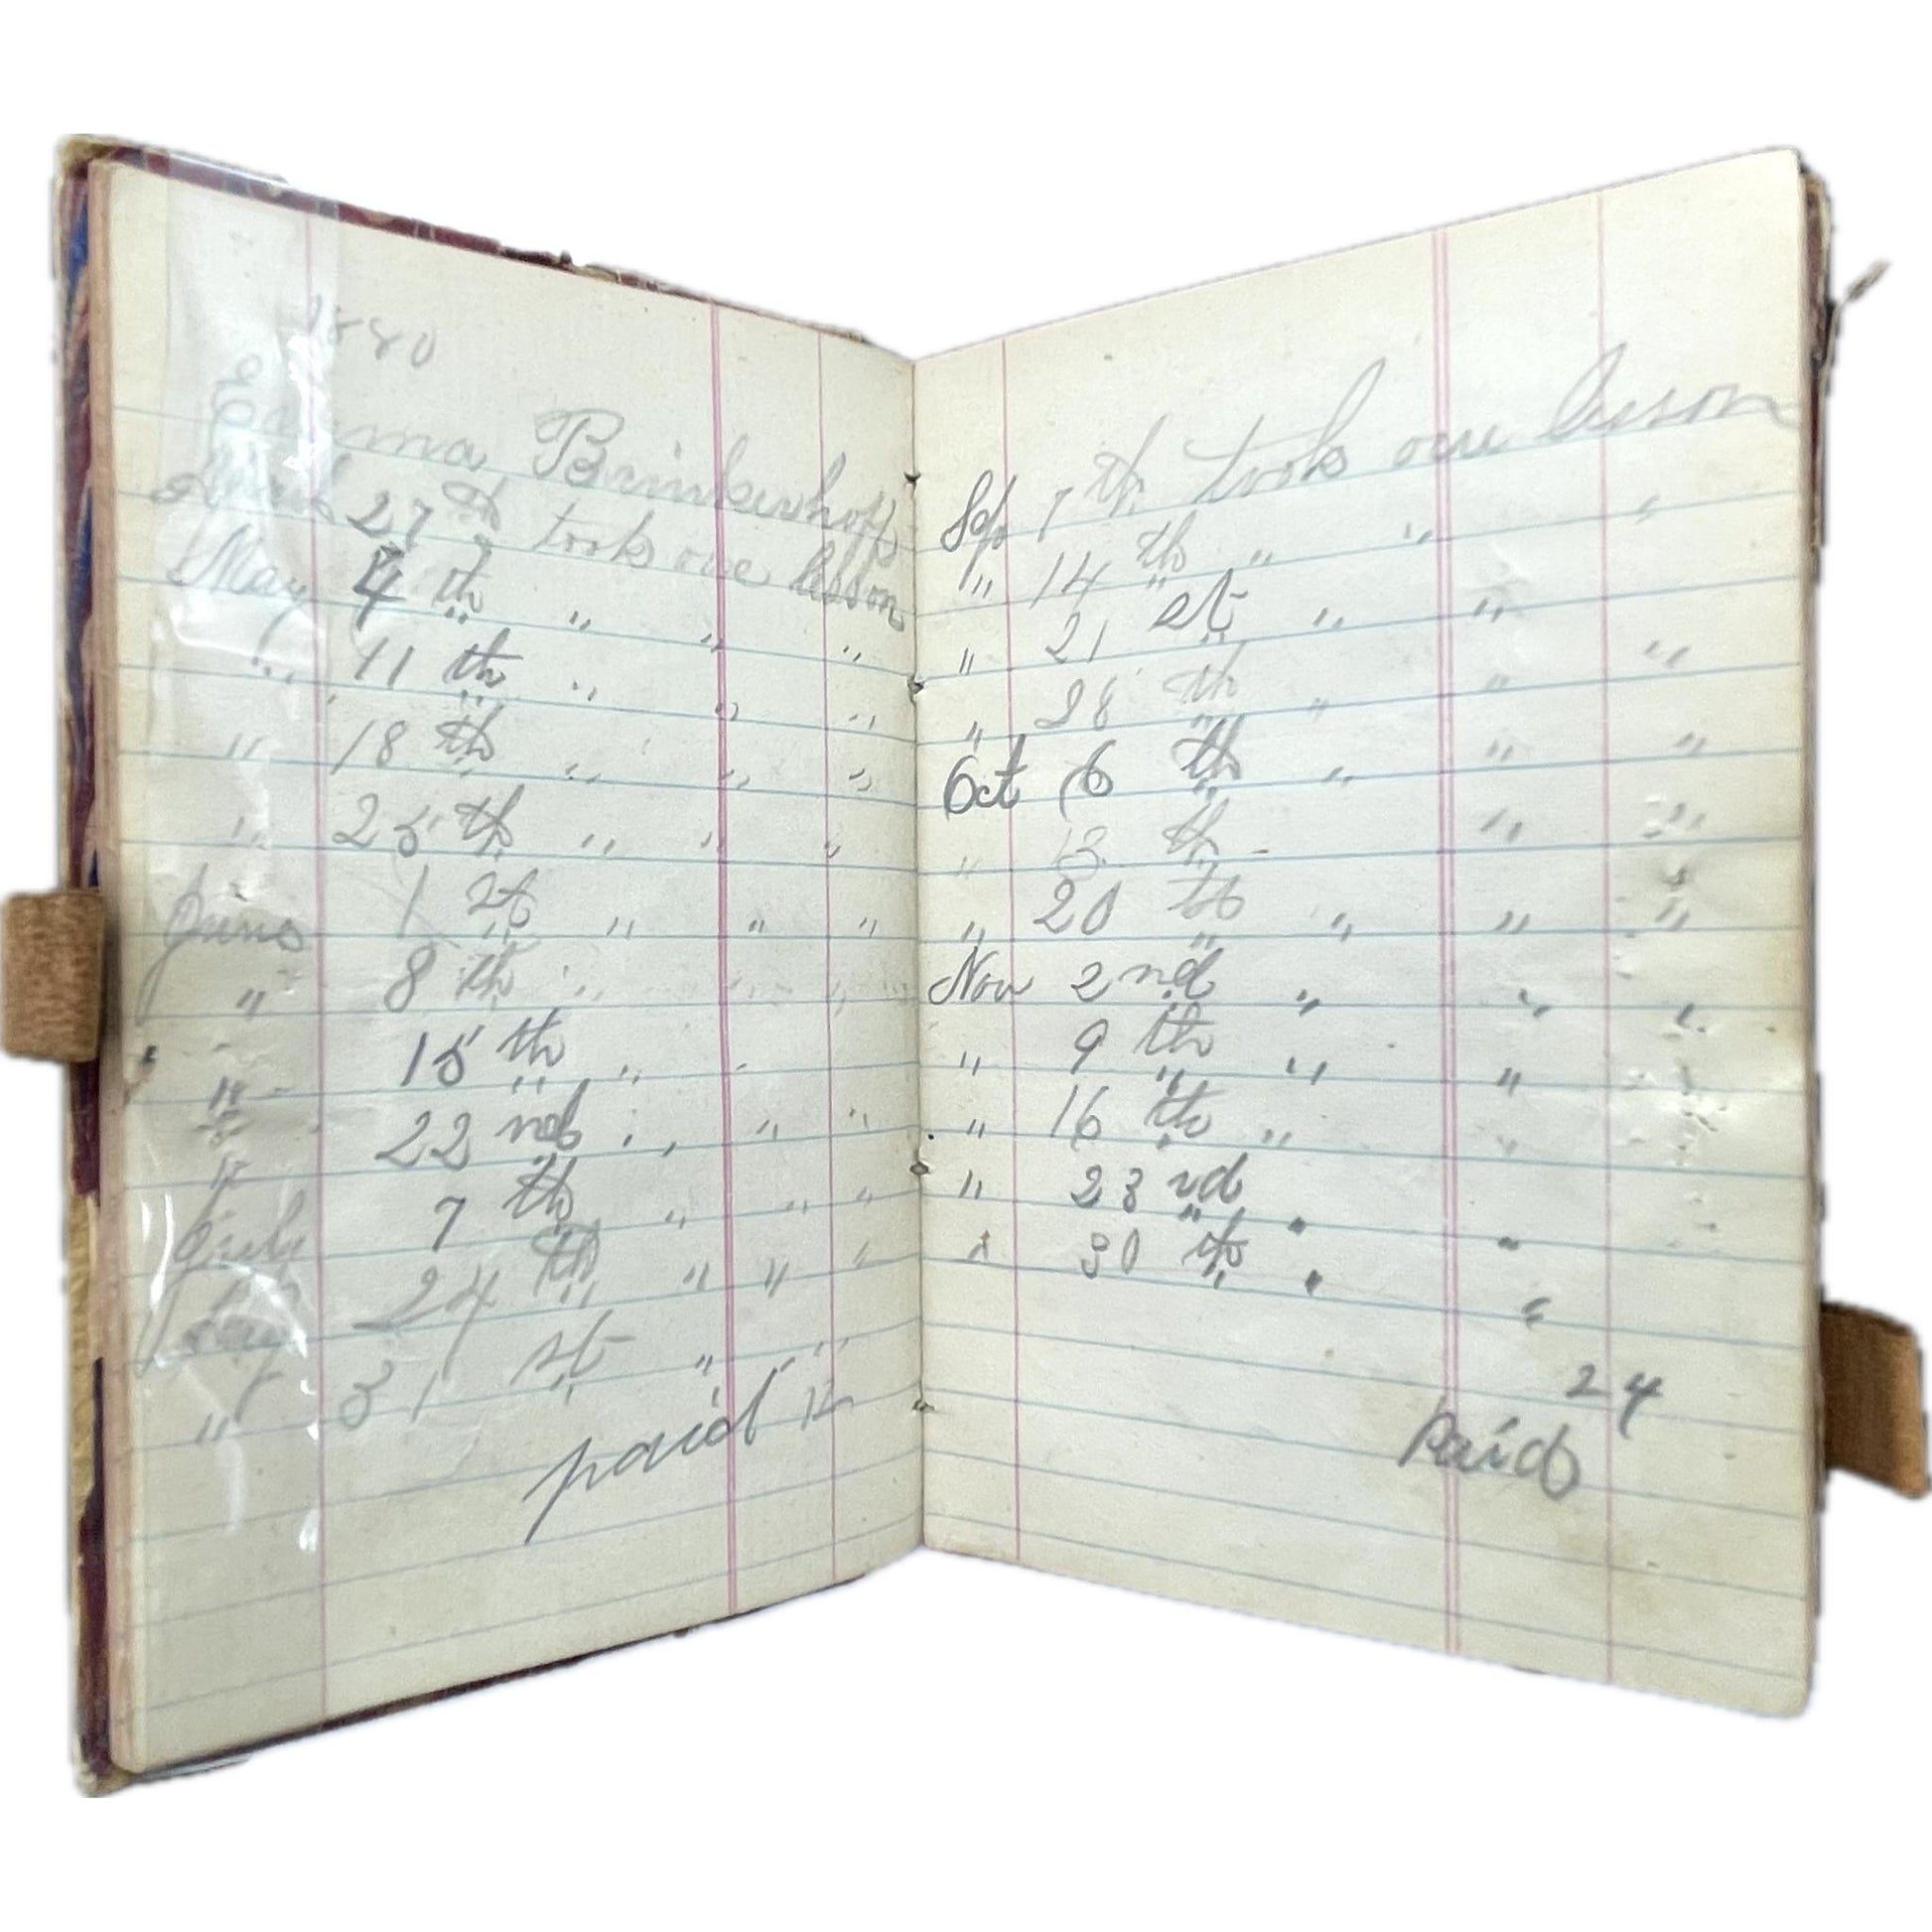 1880
Emma Brinkerhoff
April 27 th took one lesson
May 4 th " " "
" 11 th " " "
" 18 th " " "
" 25 th " " "
June 1 st " " "
" 8 th " " "
" 15 th " "
" 22 nd " " "
July 7 th " " "
24 th " " "
" 31 st " " "
paid 12
Sep 7 th took one lesson
" 14 th " " "
" 21 st " "
" 28 th " " "
Oct 6 th " " "
" 13 th " "
" 20 th " " "
Nov 2 nd " " "
" 9 th " "
" 16 th " "
" 23 rd " "
" 30 th " "
24
Paid